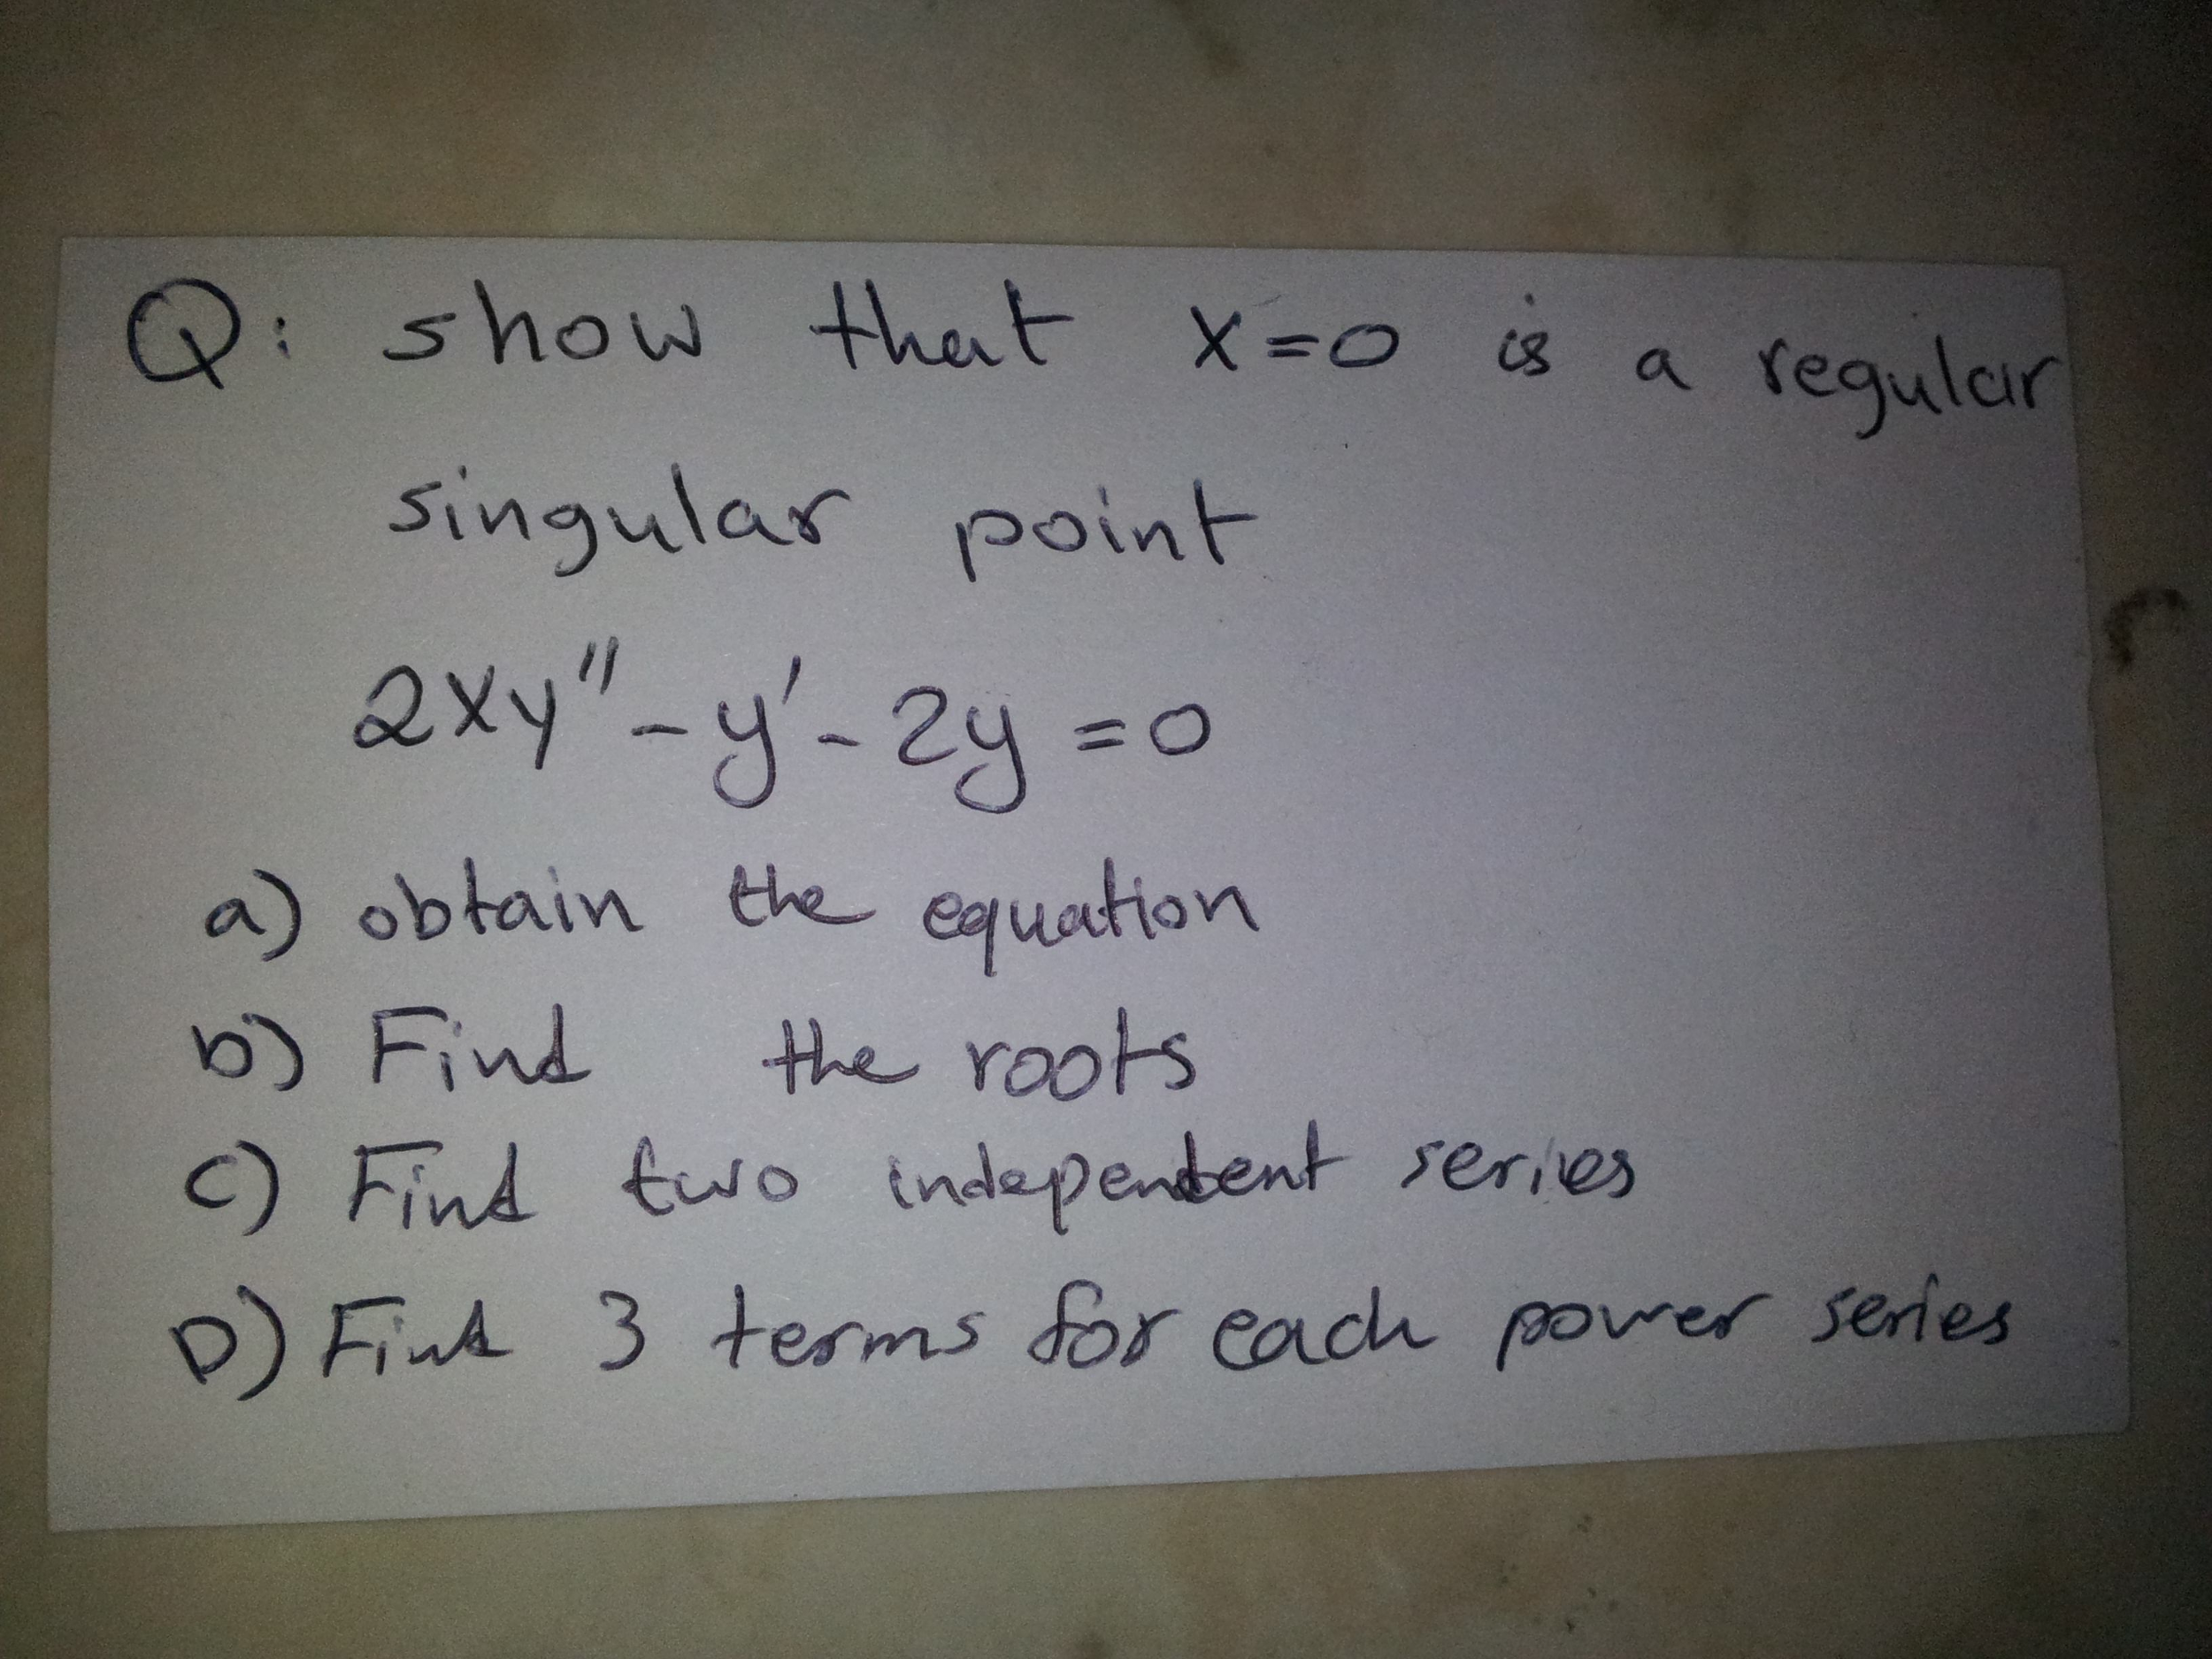 Q: show that x=0 is a regular
singular point
2xy" - y' - 2y = 0
a) obtain the equation
b) Find the roots
c) Find two independent series
D) Find 3 terms for each power series